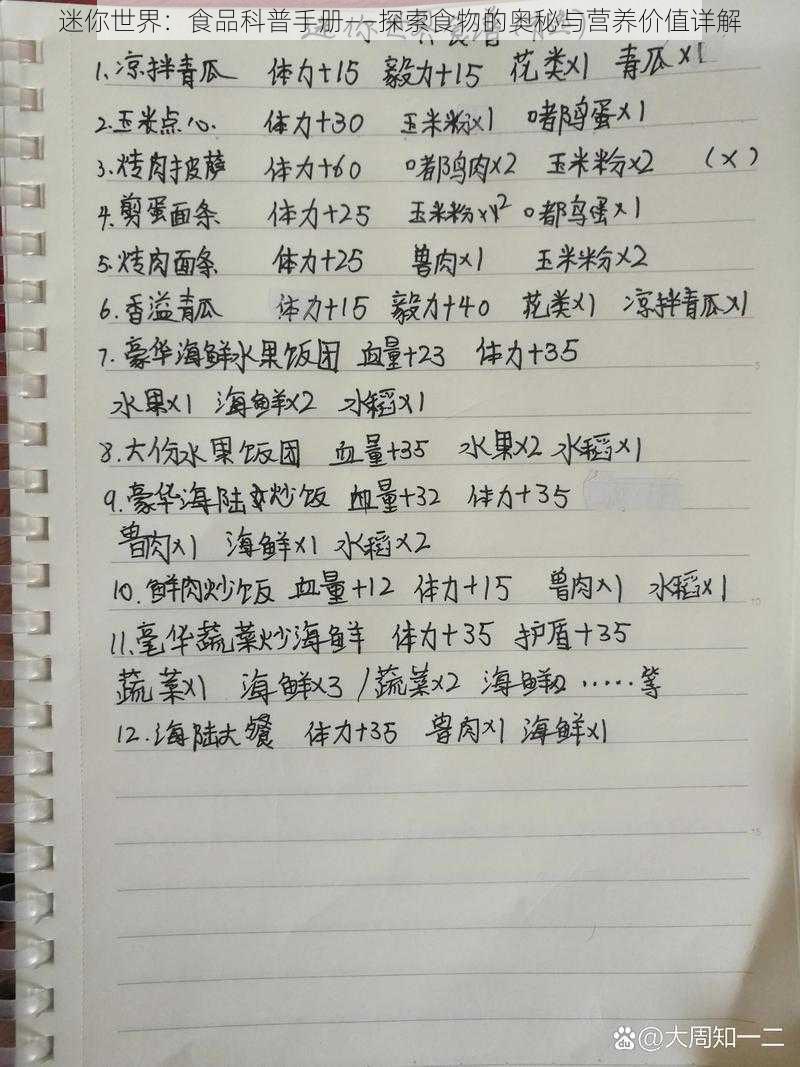 迷你世界：食品科普手册——探索食物的奥秘与营养价值详解
1.凉拌青瓜 体力+15 毅力+15 花类x1 青瓜x1
2.玉米点心. 体力+30 玉米粉x1 嘟鸟蛋x1
3.烤肉披萨 体力+60 嘟鸟肉x2 玉米粉x2 (x)
4.剪蛋面条 体力+25 玉米粉x2 嘟鸟蛋x1
5.烤肉面条 体力+25 兽肉x1 玉米粉x2
6.香溢青瓜 体力+15 毅力+40 花类x1 凉拌青瓜x1
7.豪华海鲜水果饭团 血量+23 体力+35
水果x1 海鲜x2 水稻x1
8.大份水果饭团 血量+35 水果x2 水稻x1
9.豪华海陆炒饭 血量+32 体力+35
兽肉x1 海鲜x1 水稻x2
10.鲜肉炒饭 血量+12 体力+15 兽肉x1 水稻x1
11.豪华蔬菜炒海鲜 体力+35 护盾+35
蔬菜x1 海鲜x3 /蔬菜x2 海鲜x2 ……等
12.海陆大餐 体力+35 兽肉x1 海鲜x1
5
10
15
Bai du @大周知一二